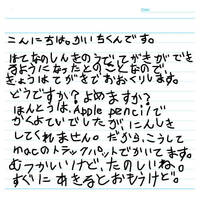 こんにちは。かいちくんです。
はてなのしんきのうで、てがきができ
るようになったとのことなので、
きょうはてがきでおおくりします。
どうですか？よめますか？
ほんとうは、Apple Pencilで
かくよていでしたが、にんしき
してくれません。だから、こうして
macのトラックパットでかいてます。
むつかしいけど、たのしいね。
すぐにあきるとおもうけど。